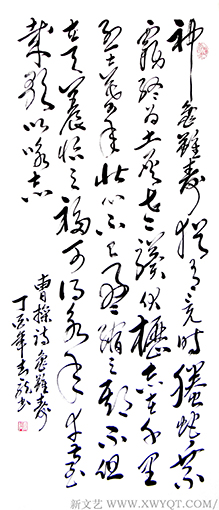 神龜雖壽猶有竟時騰蛇乘
霧終为土灰老驥伏櫪志在千里
烈士暮年壯心不已盈縮之期不但
在天養怡之福可得永年幸甚至
哉歌以咏志
曹操詩龜雖壽
丁酉年書
新文艺 / WWW.XWYQT.COM